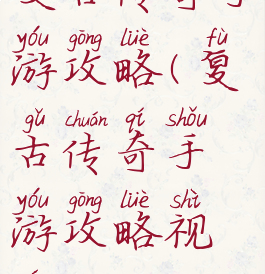 复古传奇手
yóu gōng lüè fù
游攻略(复
gǔ chuán qí shǒu
古传奇手
yóu gōng lüè shì
游攻略视